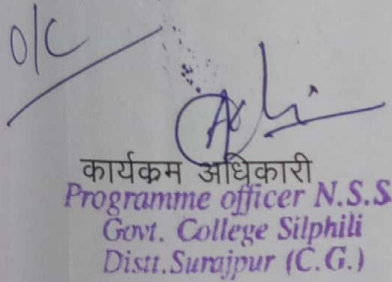 O/C
कार्यकम अधिकारी
Programme officer N.S.S
Govt. College Silphili
Distt.Surajpur (C.G.)